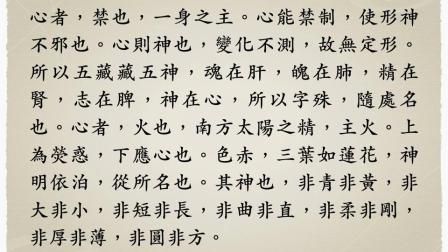 心者，禁也，一身之主。心能禁制，使形神
不邪也。心則神也，變化不測，故無定形。
所以五藏藏五神，魂在肝，魄在肺，精在
腎，志在脾，神在心，所以字殊，隨處名
也。心者，火也，南方太陽之精，主火。上
為熒惑，下應心也。色赤，三葉如蓮花，神
明依泊，從所名也。其神也，非青非黃，非
大非小，非短非長，非曲非直，非柔非剛，
非厚非薄，非圓非方。